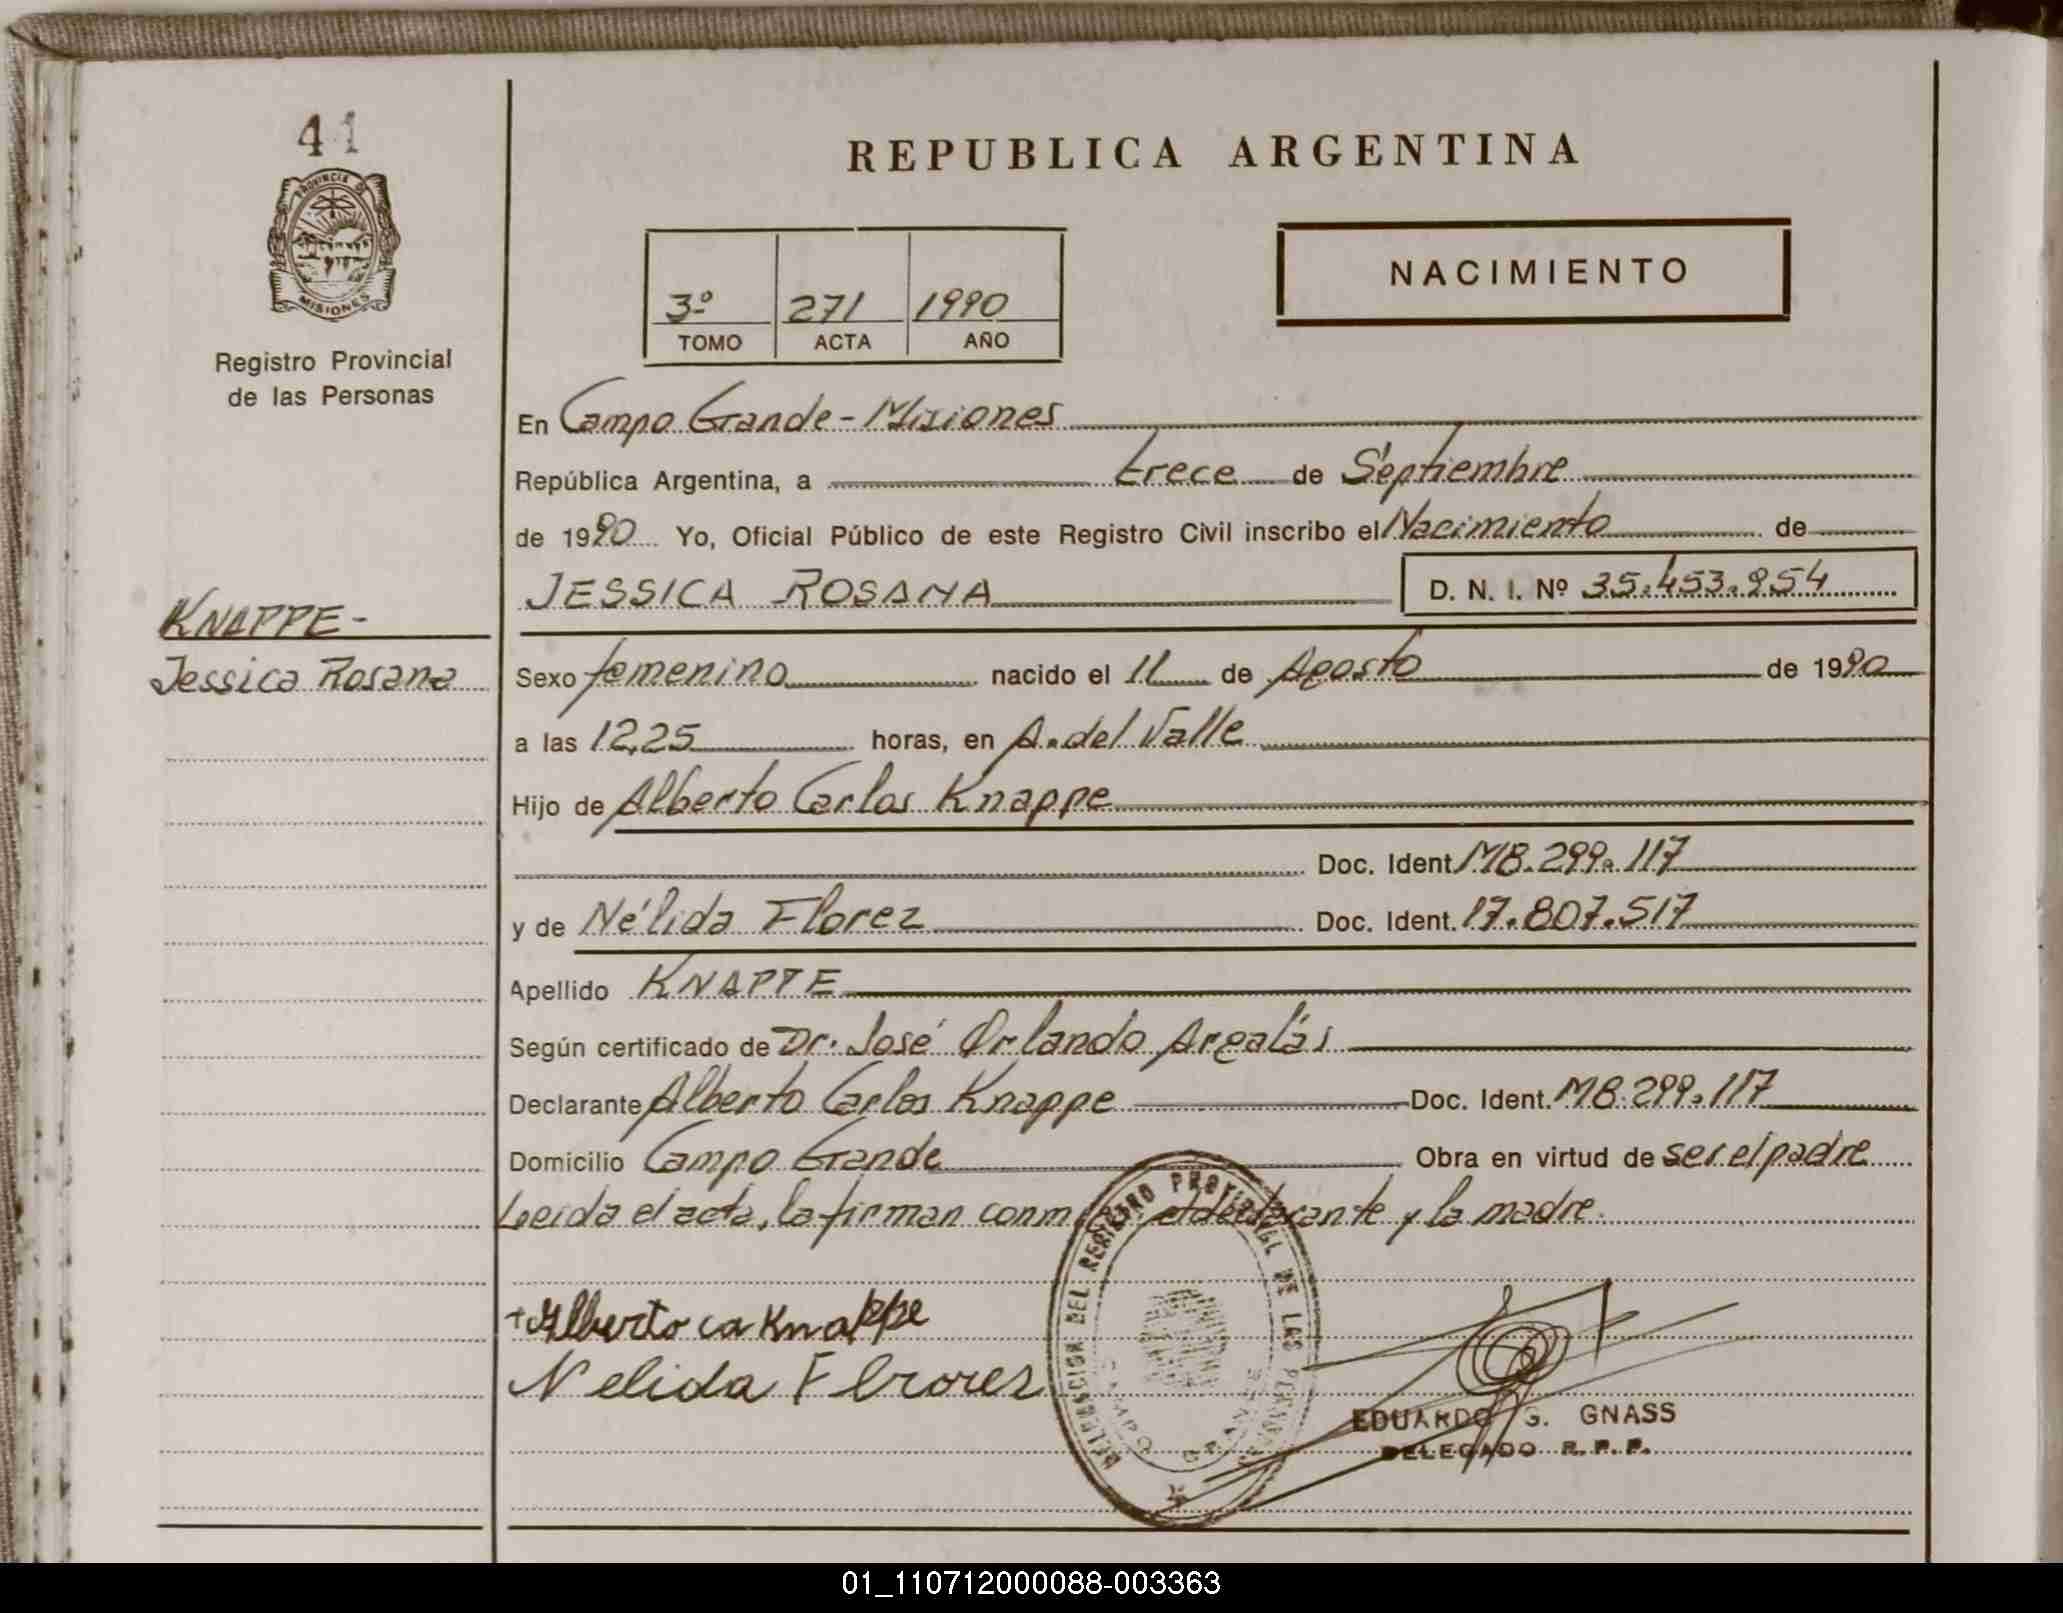 41
PROVINCIA DE
MISIONES
Registro Provincial
de las Personas
KNAPPE -
Jessica Rosana
REPUBLICA ARGENTINA
3º 271 1990
TOMO ACTA AÑO
NACIMIENTO
En Campo Grande - Misiones
República Argentina, a trece de Septiembre
de 1990 Yo, Oficial Público de este Registro Civil inscribo el Nacimiento de
JESSICA ROSANA D. N. I. Nº 35.453.954
Sexo femenino nacido el 11 de Agosto de 1990
a las 12,25 horas, en A. del Valle
Hijo de Alberto Carlos Knappe
Doc. Ident. M8.299.117
y de Nélida Florez Doc. Ident. 17.807.517
Apellido KNAPPE
Según certificado de Dr. José Orlando Argalás
Declarante Alberto Carlos Knappe Doc. Ident. M8.299.117
Domicilio Campo Grande Obra en virtud de ser el padre
Leida el acta, la firman conmigo el declarante y la madre.
Alberto ca Knappe
Nelida Florez
DELEGACION DEL REGISTRO PROVINCIAL DE LAS PERSONAS
CAMPO GRANDE
EDUARDO G. GNASS
DELEGADO R. P. P.
01_110712000088-003363